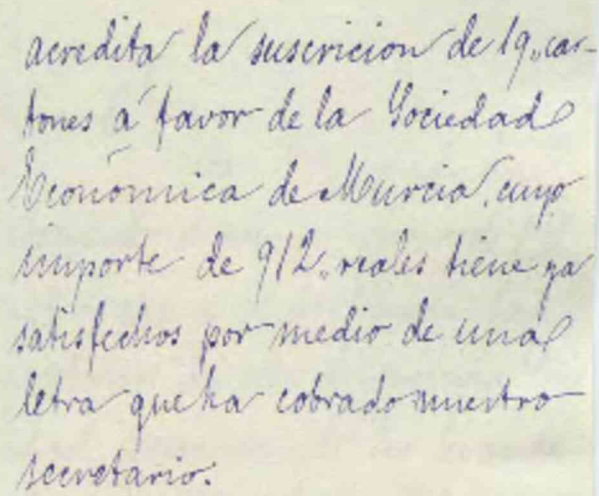 acredita la suscricion de 19, car-
tones á favor de la Sociedad
Económica de Murcia, cuyo
importe de 912, reales tiene ya
satisfechos por medio de una
letra que ha cobrado nuestro
secretario.